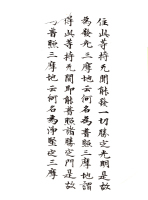 住此等持无間能發一切勝定光明是故
為發光三摩地云何名為普照三摩地謂
得此等持无間即能普照諸勝定門是故
為普照三摩地云何名為淨堅定三摩